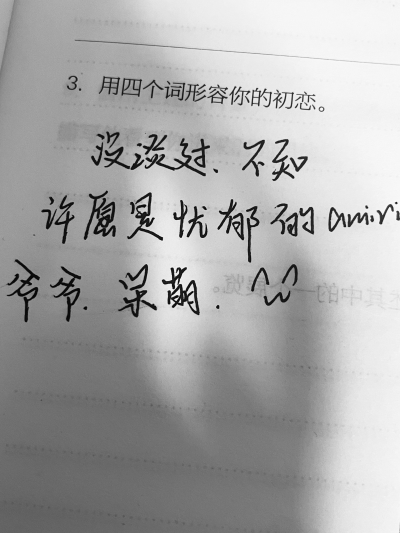 3. 用四个词形容你的初恋。
没谈过、不知
许愿是忧郁的amiri
爷爷.呆萌.